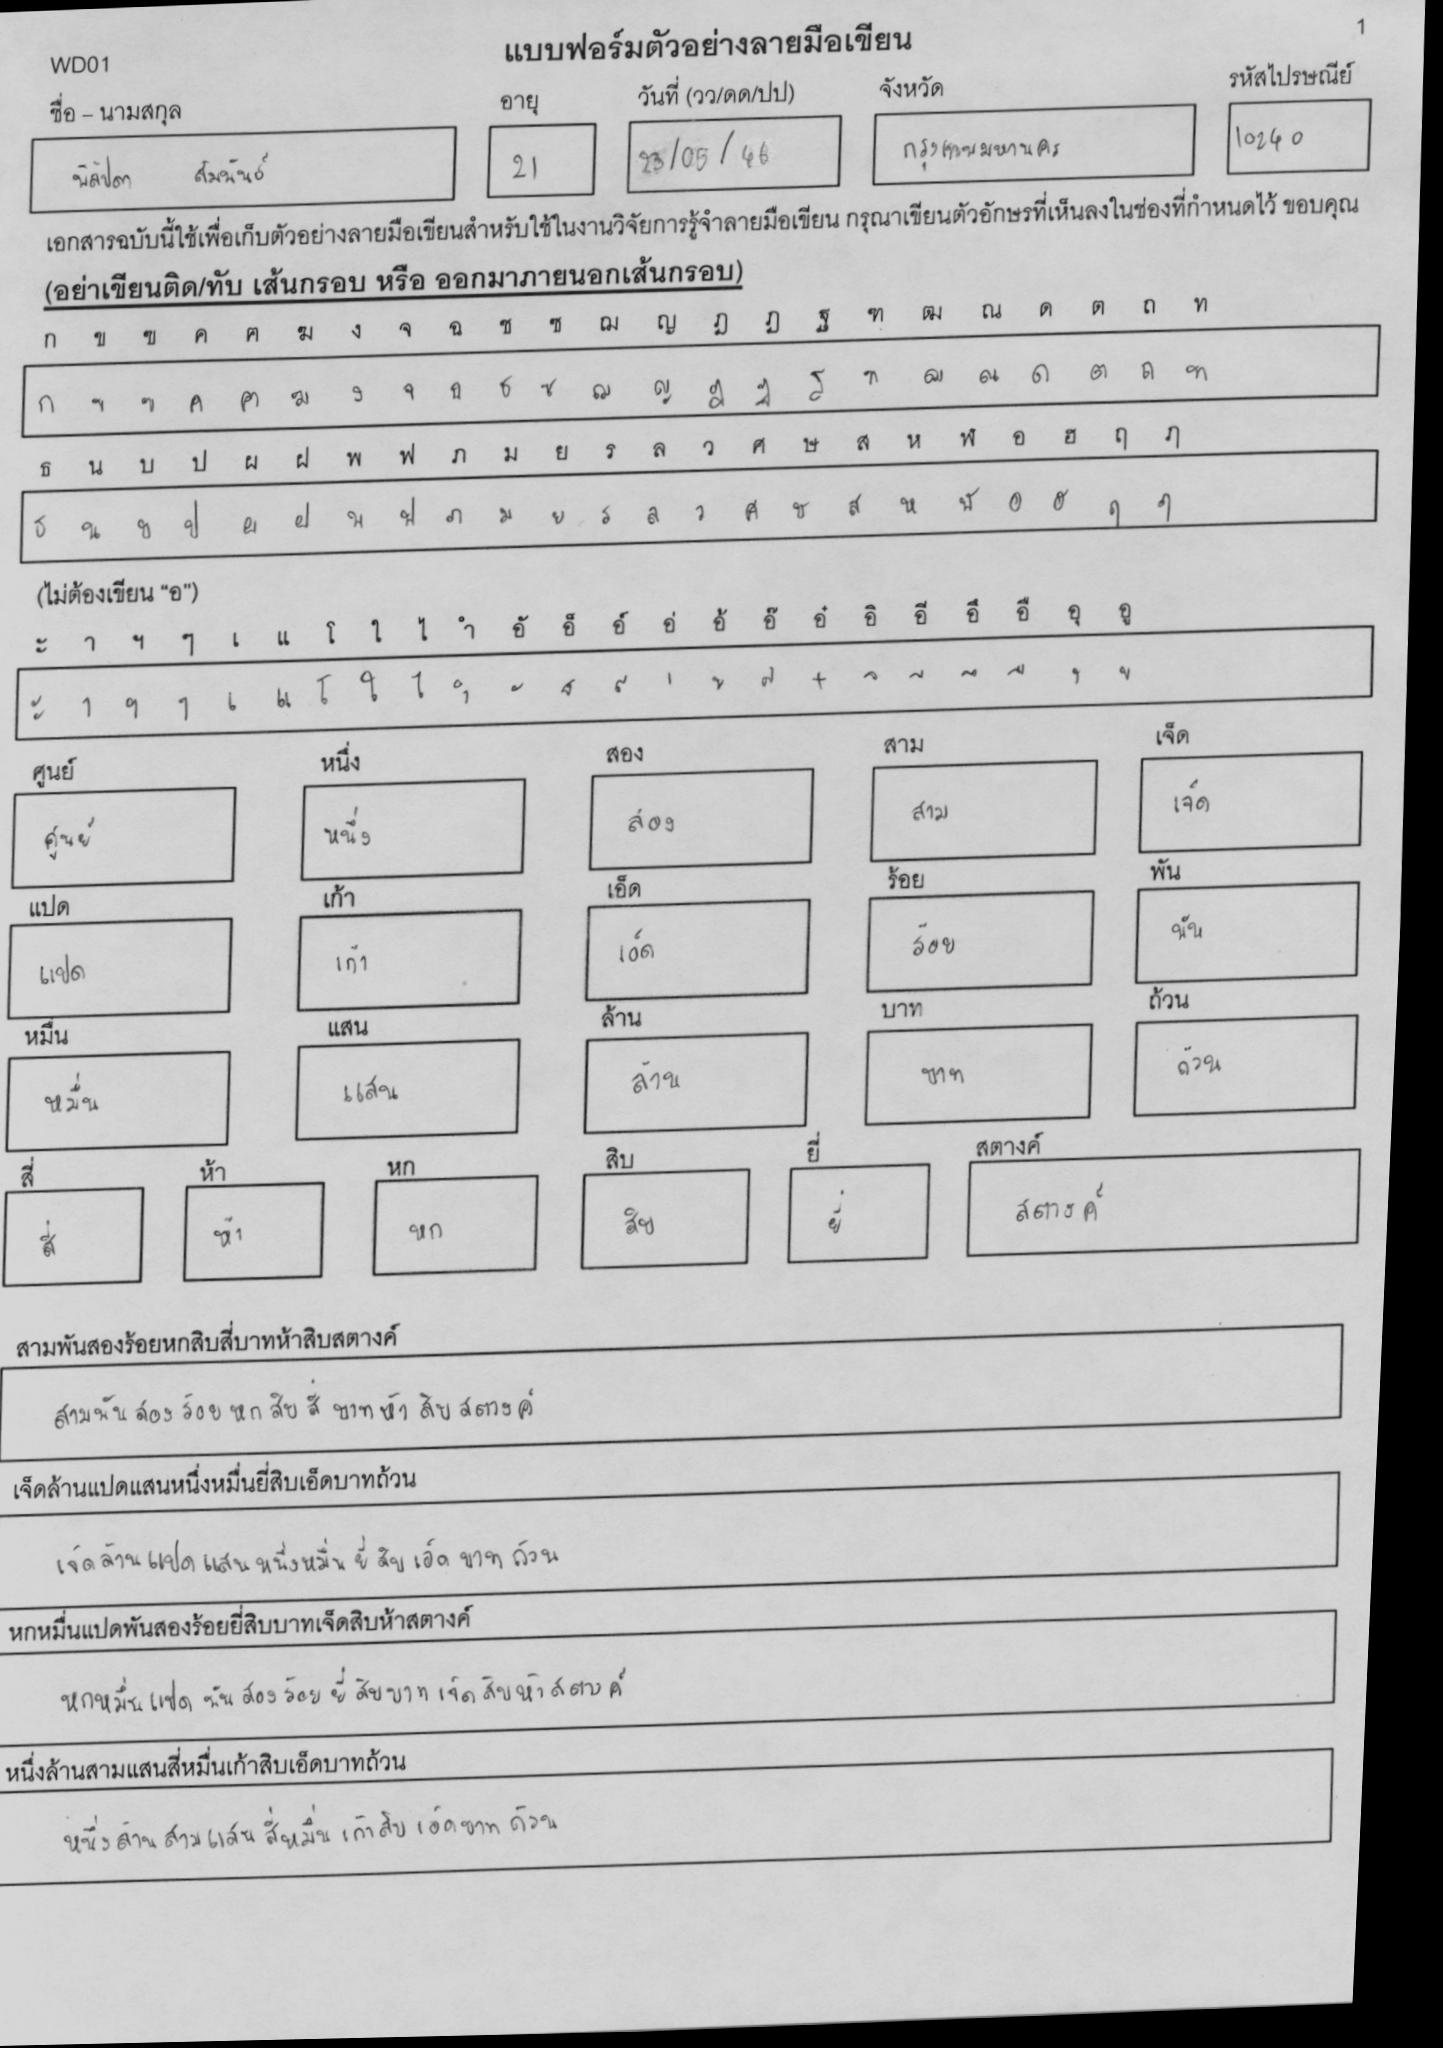 แบบฟอร์มตัวอย่างลายมือเขียน 1
WD01
ชื่อ – นามสกุล อายุ วันที่ (วว/ดด/ปป) จังหวัด รหัสไปรษณีย์
สัมพันธ์ 21 23/05/46 กรุงเทพมหานคร 10240
เอกสารฉบับนี้ใช้เพื่อเก็บตัวอย่างลายมือเขียนสำหรับใช้ในงานวิจัยการรู้จำลายมือเขียน กรุณาเขียนตัวอักษรที่เห็นลงในช่องที่กำหนดไว้ ขอบคุณ
(อย่าเขียนติด/ทับ เส้นกรอบ หรือ ออกมาภายนอกเส้นกรอบ)
ก ข ฃ ค ฅ ฆ ง จ ฉ ช ซ ฌ ญ ฎ ฏ ฐ ฑ ฒ ณ ด ต ถ ท
ก ข ฃ ค ฅ ฆ ง จ ฉ ช ซ ฌ ญ ฎ ฏ ฐ ฑ ฒ ณ ด ต ถ ท
ธ น บ ป ผ ฝ พ ฟ ภ ม ย ร ล ว ศ ษ ส ห ฬ อ ฮ ฤ ฦ
ธ น บ ป ผ ฝ พ ฟ ภ ม ย ร ล ว ศ ษ ส ห ฬ อ ฮ ฤ ฦ
(ไม่ต้องเขียน “อ”)
ะ า ฯ ๆ เ แ โ ใ ไ ำ อั อ็ อ์ อ่ อ้ อ๊ อ๋ อิ อี อึ อื อุ อู
ะ า ฯ ๆ เ แ โ ใ ไ ำ ั ็ ์ ่ ้ ๊ ๋ ิ ี ึ ื ุ ู
ศูนย์ หนึ่ง สอง สาม เจ็ด
ศูนย์ หนึ่ง สอง สาม เจ็ด
แปด เก้า เอ็ด ร้อย พัน
แปด เก้า เอ็ด ร้อย พัน
หมื่น แสน ล้าน บาท ถ้วน
หมื่น แสน ล้าน บาท ถ้วน
สี่ ห้า หก สิบ ยี่ สตางค์
สี่ ห้า หก สิบ ยี่ สตางค์
สามพันสองร้อยหกสิบสี่บาทห้าสิบสตางค์
สามพันสองร้อยหกสิบสี่บาทห้าสิบสตางค์
เจ็ดล้านแปดแสนหนึ่งหมื่นยี่สิบเอ็ดบาทถ้วน
เจ็ดล้านแปดแสนหนึ่งหมื่นยี่สิบเอ็ดบาทถ้วน
หกหมื่นแปดพันสองร้อยยี่สิบบาทเจ็ดสิบห้าสตางค์
หกหมื่นแปดพันสองร้อยยี่สิบบาทเจ็ดสิบห้าสตางค์
หนึ่งล้านสามแสนสี่หมื่นเก้าสิบเอ็ดบาทถ้วน
หนึ่งล้านสามแสนสี่หมื่นเก้าสิบเอ็ดบาทถ้วน